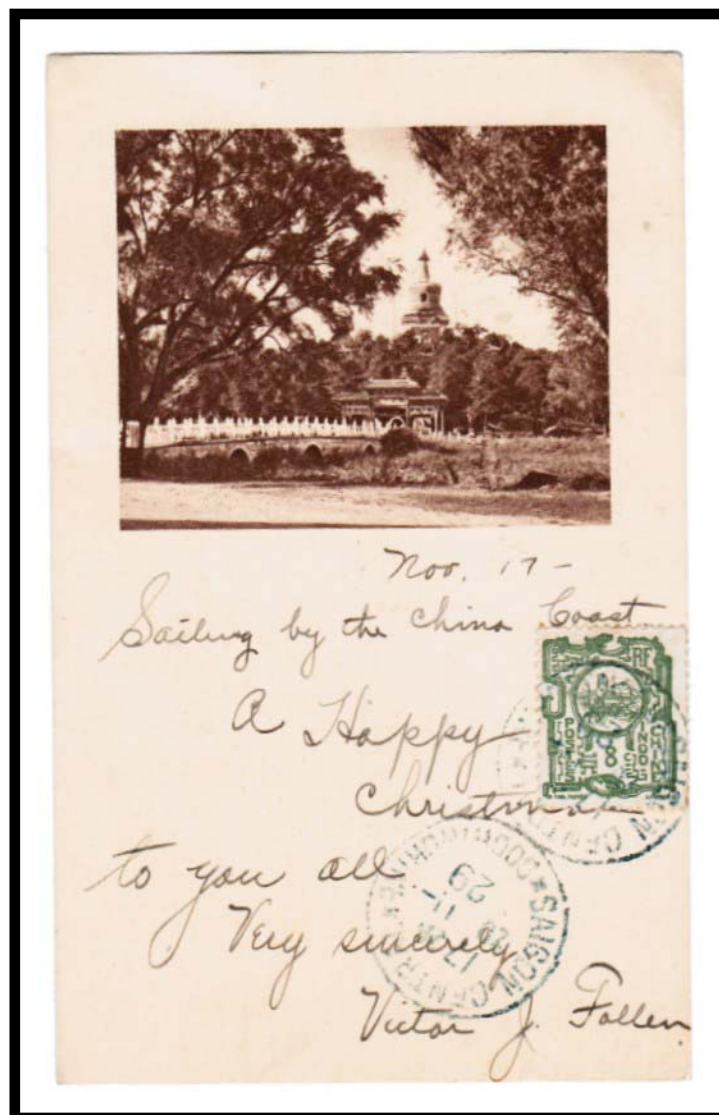 Nov. 17 -
Sailing by the China Coast
A Happy
Christmas
to you all
Very sincerely
Victor J. Fallen
RF
INDOCHINE
POSTES
8
SAIGON CENTRAL
SAIGON CENTRAL
COCHINCHINE
17
11
29